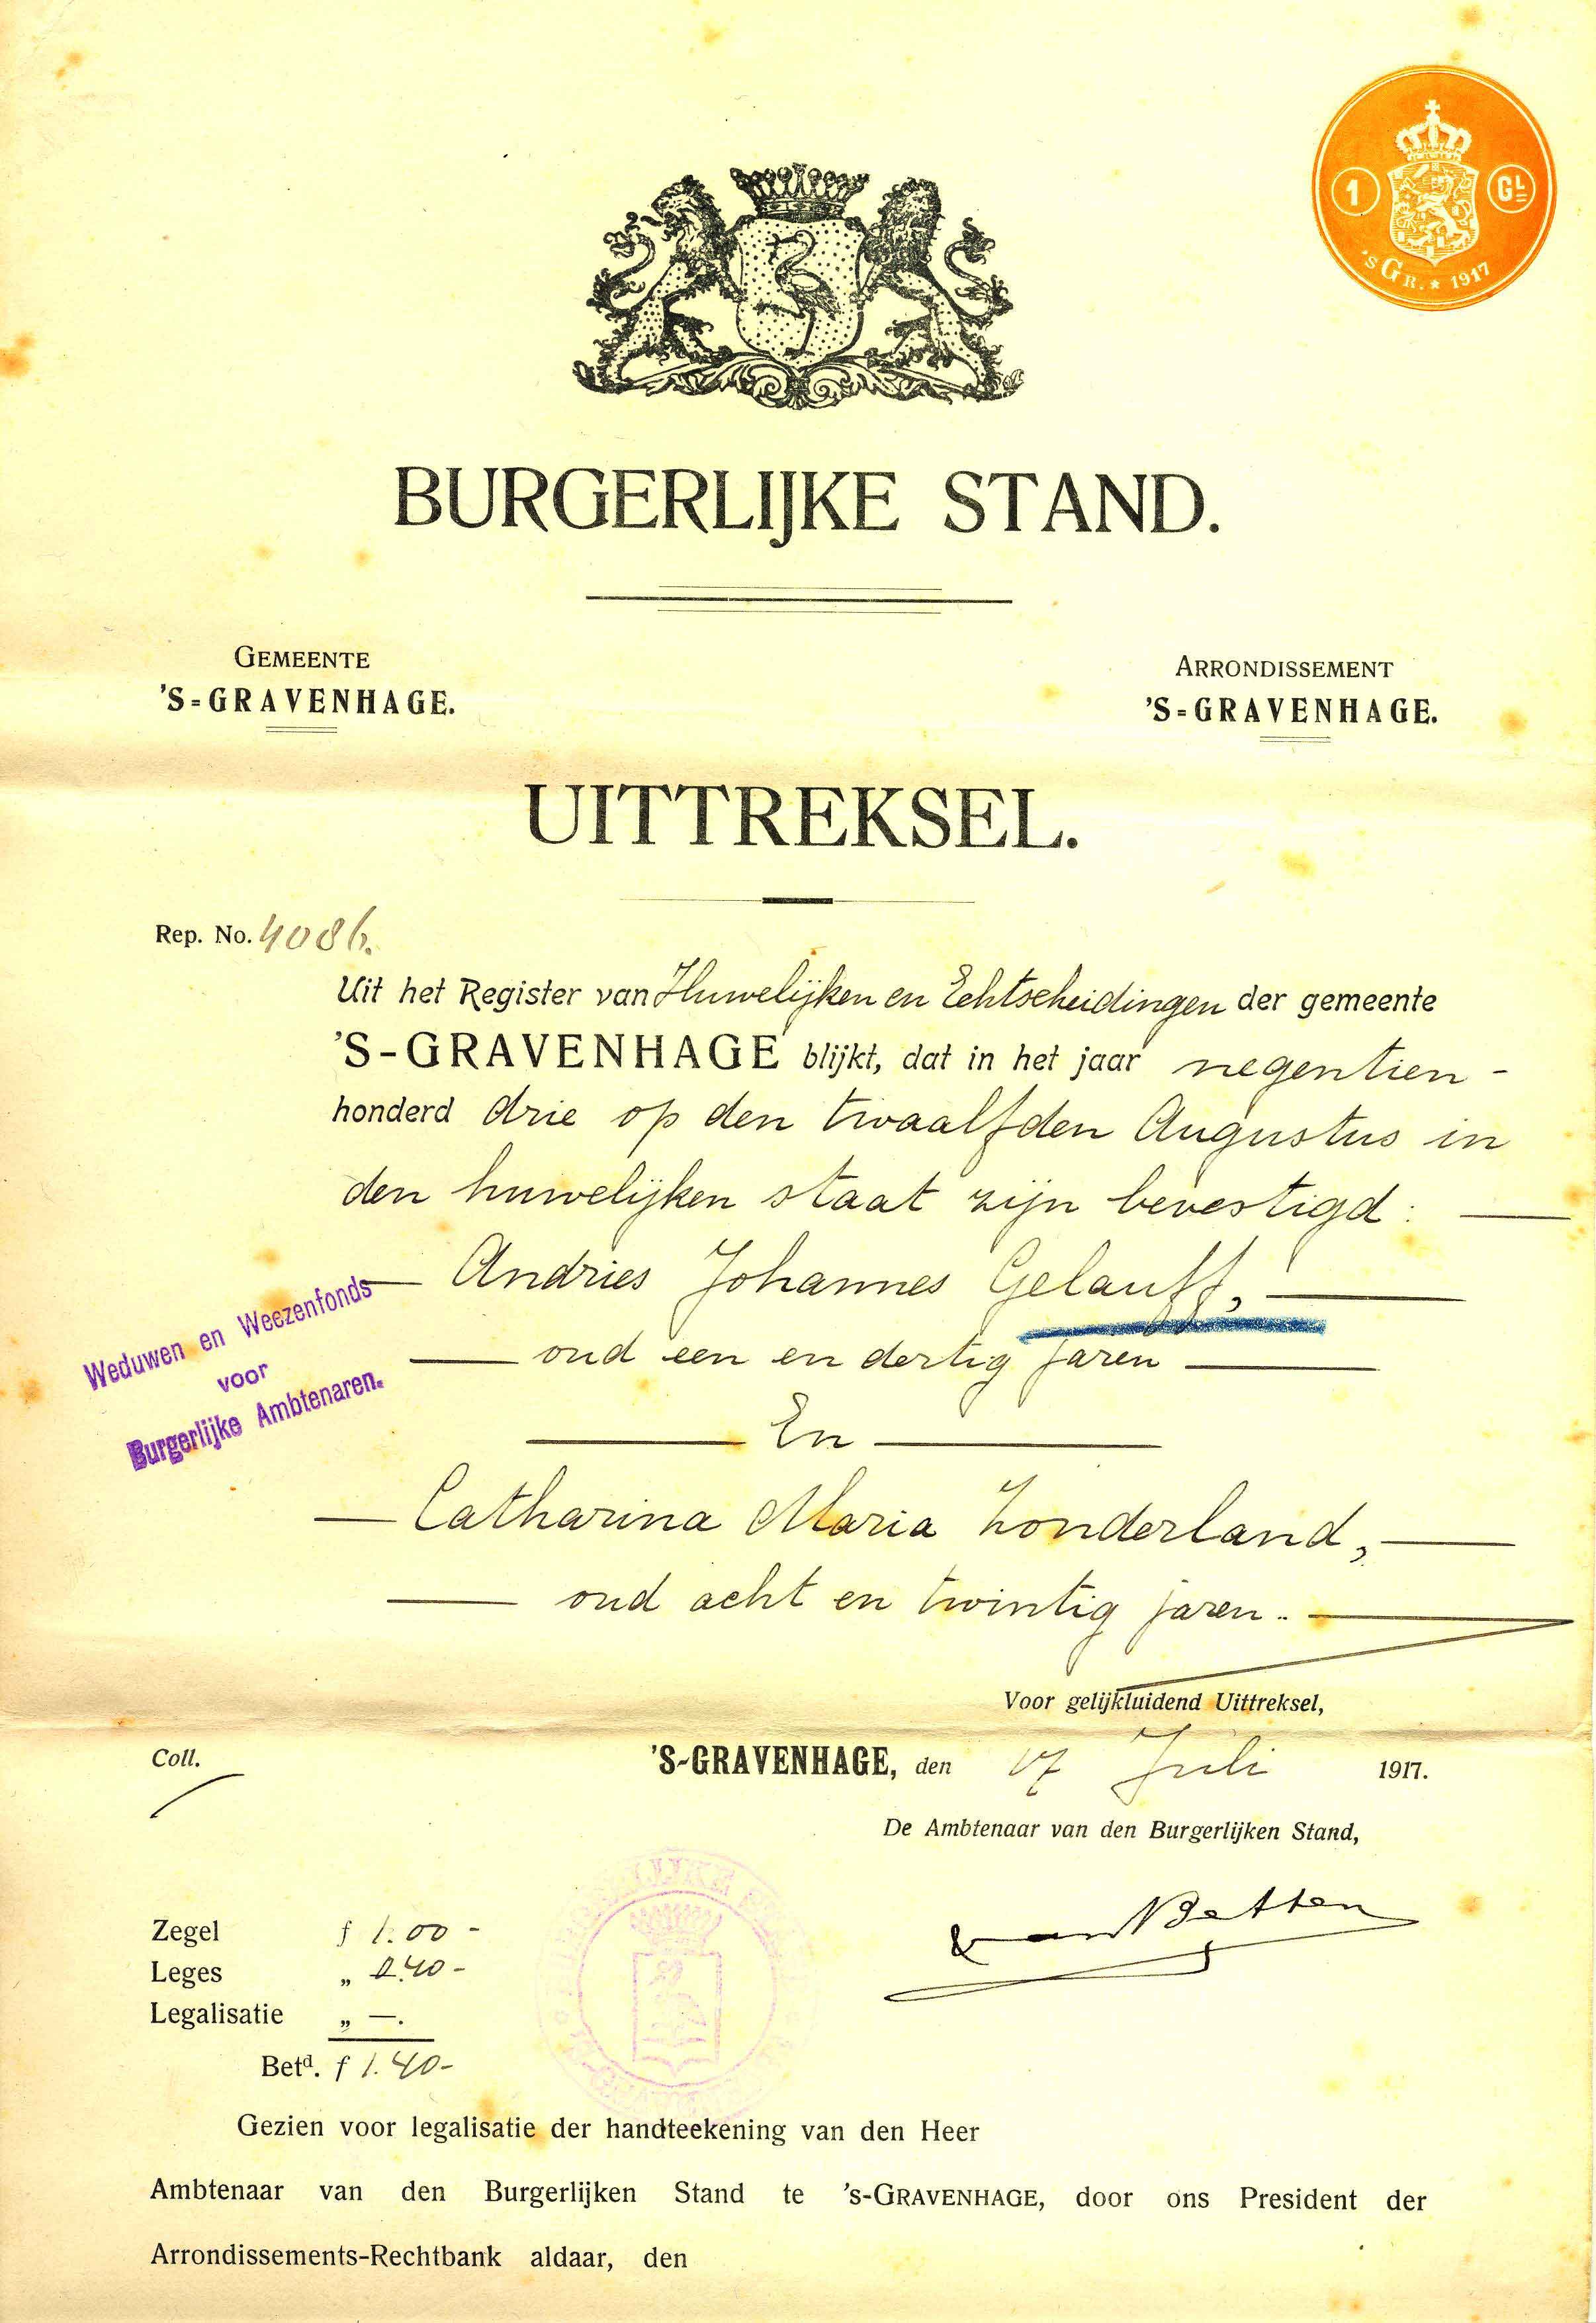 1
GL
'S GR. * 1917
BURGERLIJKE STAND.
GEMEENTE
'S=GRAVENHAGE.
ARRONDISSEMENT
'S=GRAVENHAGE.
UITTREKSEL.
Rep. No. 4086.
Uit het Register van Huwelijken en Echtscheidingen der gemeente
'S-GRAVENHAGE blijkt, dat in het jaar negentien-
honderd drie op den twaalfden Augustus in
den huwelijken staat zijn bevestigd:
Andries Johannes Gelauff,
oud een en dertig jaren
En
Catharina Maria Zonderland,
oud acht en twintig jaren.
Weduwen en Weezenfonds
voor
Burgerlijke Ambtenaren.
Voor gelijkluidend Uittreksel,
Coll.
'S-GRAVENHAGE, den 17 Juli 1917.
De Ambtenaar van den Burgerlijken Stand,
Zegel f 1.00-
Leges „ 0.40-
Legalisatie „ —.
Betd. f 1.40-
Gezien voor legalisatie der handteekening van den Heer
Ambtenaar van den Burgerlijken Stand te 's-GRAVENHAGE, door ons President der
Arrondissements-Rechtbank aldaar, den